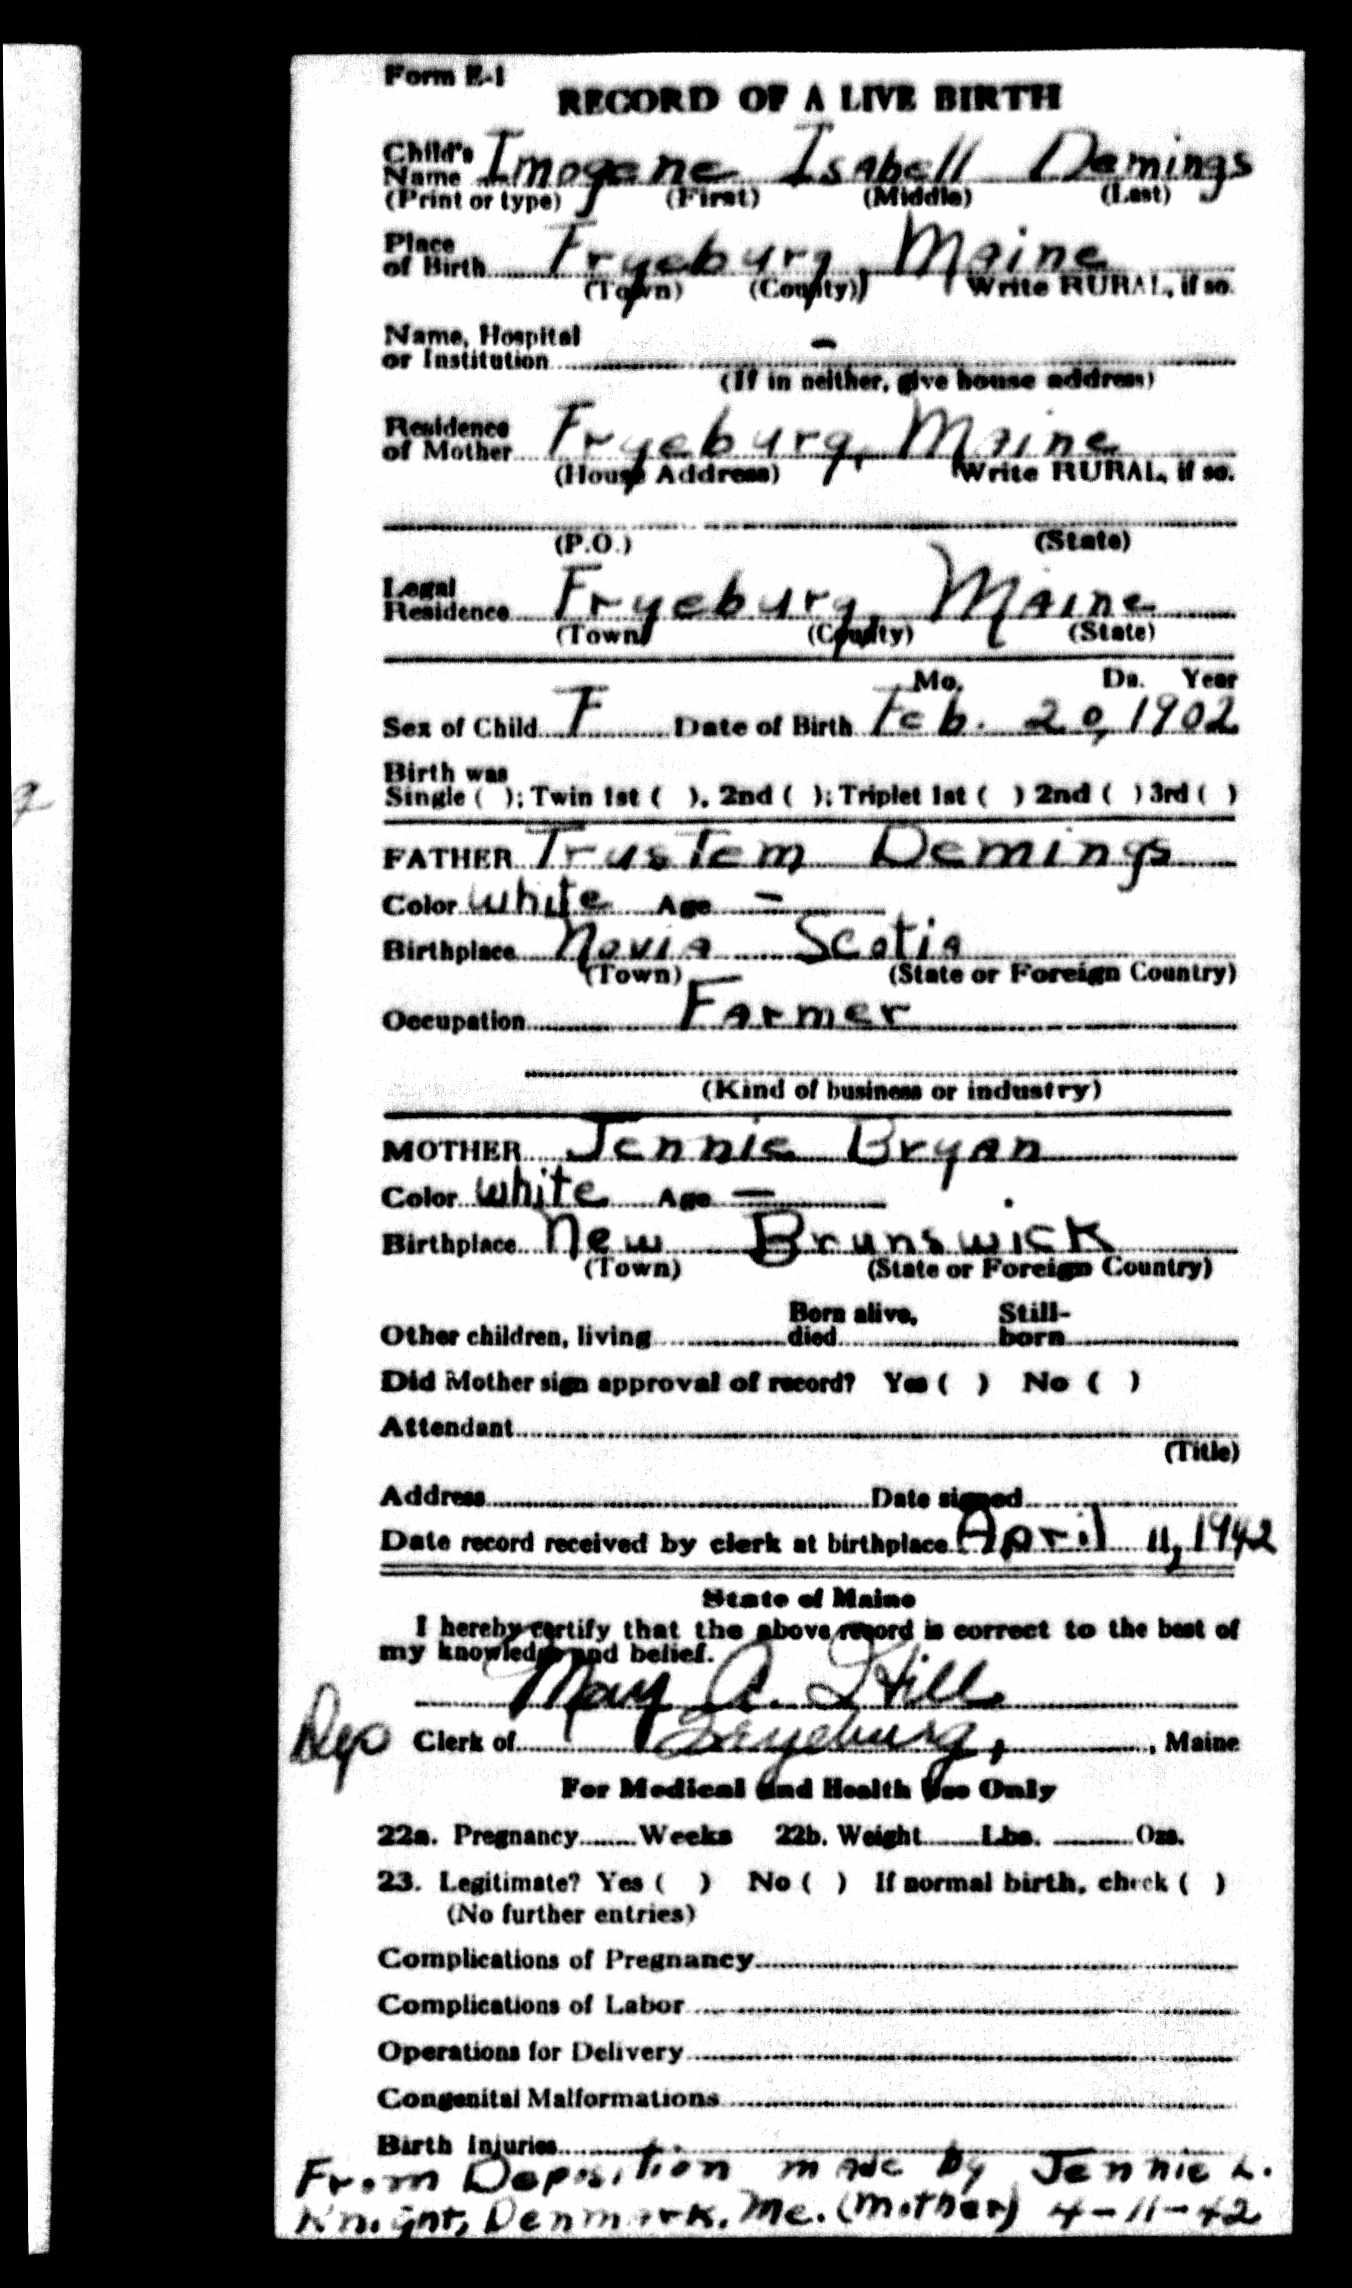 Form E-1
RECORD OF A LIVE BIRTH
Child's
Name Imogene Isabell Demings
(Print or type) (First) (Middle) (Last)
Place
of Birth Fryeburg, Maine
(Town) (County) Write RURAL, if so.
Name, Hospital
or Institution -
(If in neither, give house address)
Residence
of Mother Fryeburg, Maine
(House Address) Write RURAL, if so.
(P.O.) (State)
Legal
Residence Fryeburg, Maine
(Town) (County) (State)
Mo. Da. Year
Sex of Child F Date of Birth Feb. 20, 1902
Birth was
Single ( ); Twin 1st ( ), 2nd ( ); Triplet 1st ( ) 2nd ( ) 3rd ( )
FATHER Trustem Demings
Color white Age -
Birthplace Novia Scotia
(Town) (State or Foreign Country)
Occupation Farmer
(Kind of business or industry)
MOTHER Jennie Bryan
Color white Age -
Birthplace New Brunswick
(Town) (State or Foreign Country)
Born alive, Still-
Other children, living died born
Did Mother sign approval of record? Yes ( ) No ( )
Attendant
(Title)
Address Date signed
Date record received by clerk at birthplace April 11, 1942
State of Maine
I hereby certify that the above record is correct to the best of
my knowledge and belief.
May A. Hill
Dep Clerk of Fryeburg, , Maine
For Medical and Health Use Only
22a. Pregnancy Weeks 22b. Weight Lbs. Ozs.
23. Legitimate? Yes ( ) No ( ) If normal birth, check ( )
(No further entries)
Complications of Pregnancy
Complications of Labor
Operations for Delivery
Congenital Malformations
Birth Injuries
From Deposition made by Jennie L.
Knight, Denmark, Me. (Mother) 4-11-42